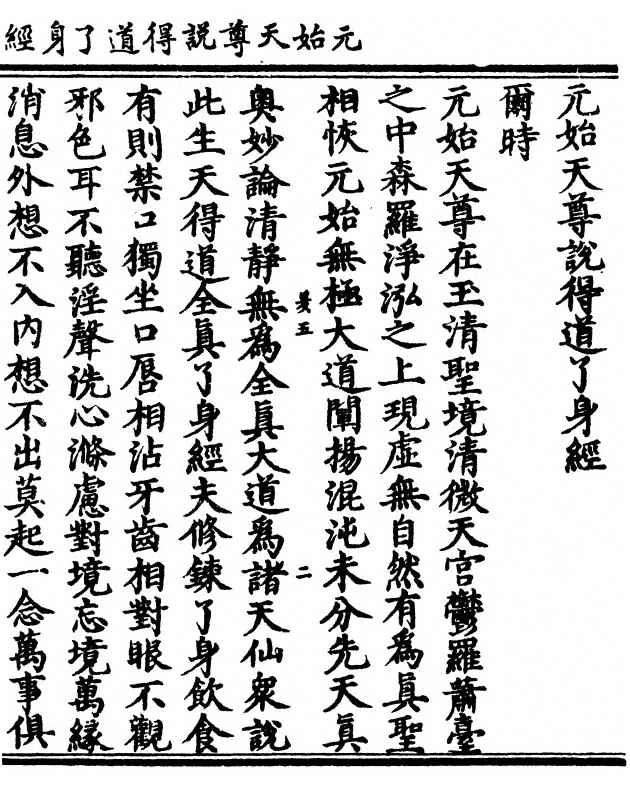 元始天尊說得道了身經
元始天尊說得道了身經
爾時
元始天尊在玉清聖境清微天宮鬱羅蕭臺
之中森羅淨泓之上現虛無自然有為真聖
相恢元始無極大道闡揚混沌未分先天真
羙五 二
奧妙論清靜無為全真大道為諸天仙衆說
此生天得道全真了身經夫修鍊了身飲食
有則禁口獨坐口唇相沾牙齒相對眼不觀
邪色耳不聽淫聲洗心滌慮對境忘境萬緣
消息外想不入內想不出莫起一念萬事俱